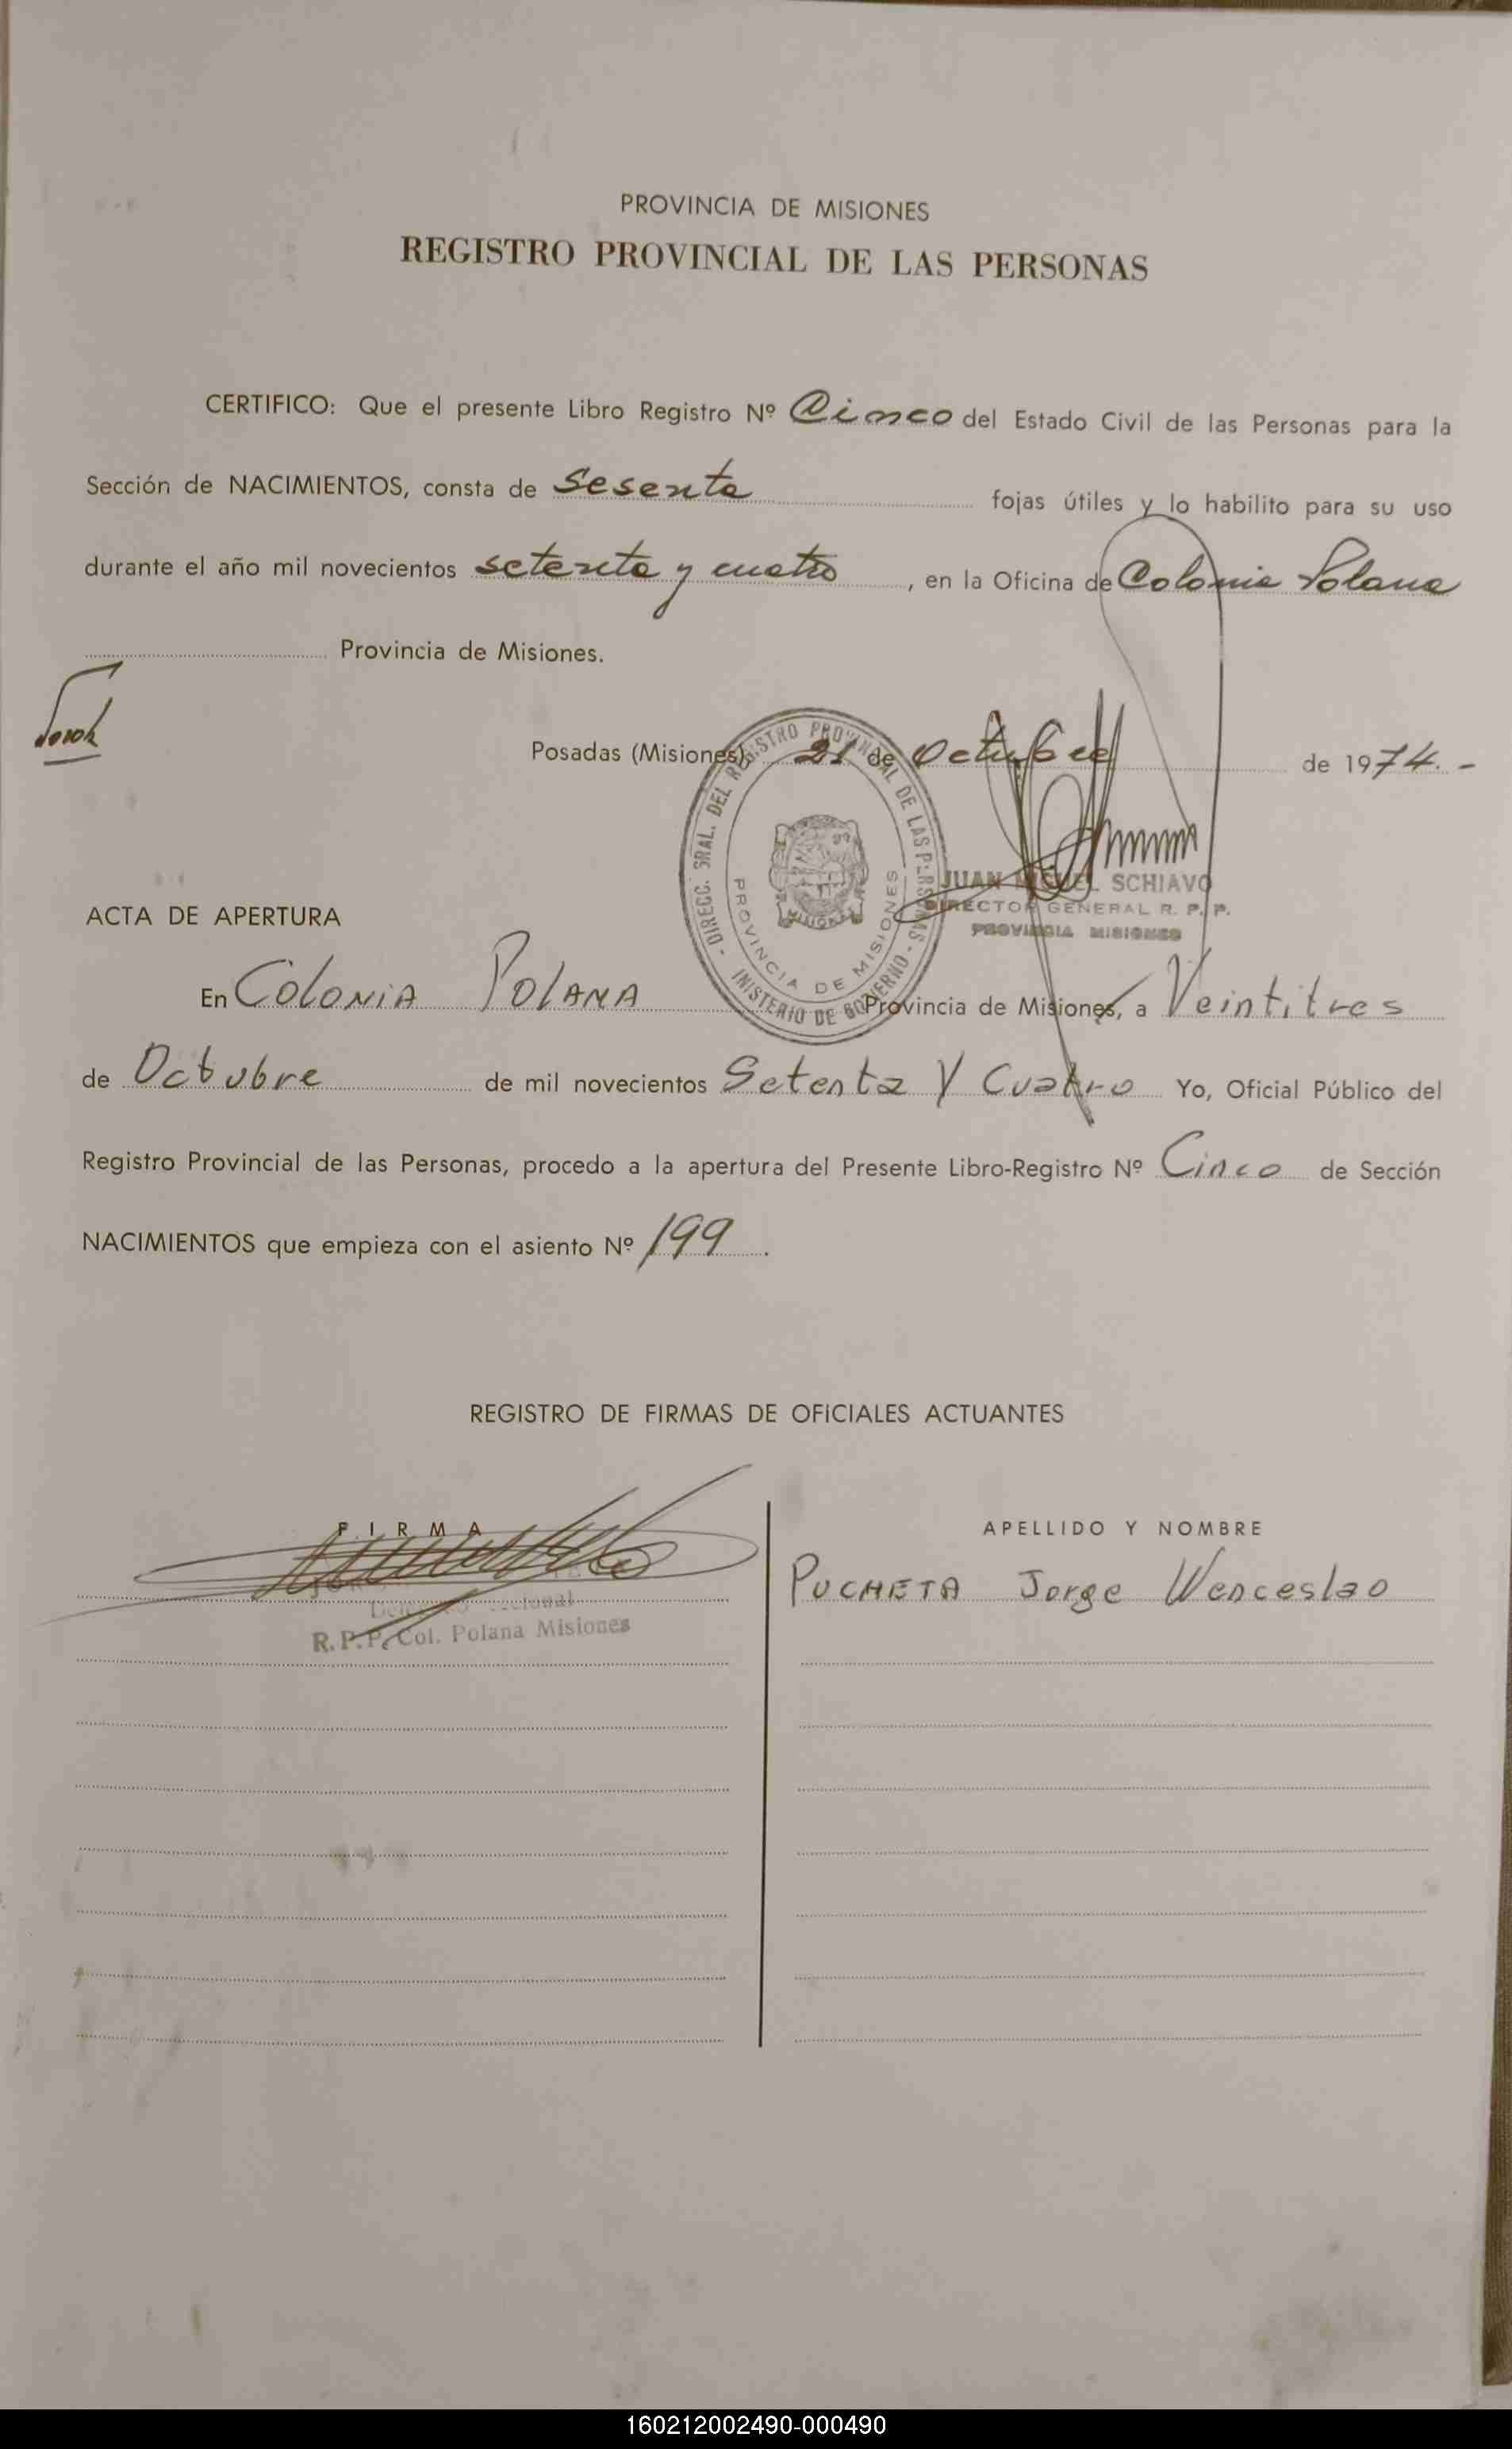 PROVINCIA DE MISIONES
REGISTRO PROVINCIAL DE LAS PERSONAS
CERTIFICO: Que el presente Libro Registro Nº Cinco del Estado Civil de las Personas para la
Sección de NACIMIENTOS, consta de Sesenta fojas útiles y lo habilito para su uso
durante el año mil novecientos setenta y cuatro, en la Oficina de Colonia Polana
Provincia de Misiones.
Posadas (Misiones), 21 de Octubre de 1974.-
DIRECC. GRAL. DEL REGISTRO PROVINCIAL DE LAS PERSONAS - MINISTERIO DE GOBIERNO -
PROVINCIA DE MISIONES
JUAN MIGUEL SCHIAVO
DIRECTOR GENERAL R. P. P.
PROVINCIA MISIONES
ACTA DE APERTURA
En Colonia Polana Provincia de Misiones, a Veintitres
de Octubre de mil novecientos Setenta Y Cuatro Yo, Oficial Público del
Registro Provincial de las Personas, procedo a la apertura del Presente Libro-Registro Nº Cinco de Sección
NACIMIENTOS que empieza con el asiento Nº 199.
REGISTRO DE FIRMAS DE OFICIALES ACTUANTES
FIRMA
APELLIDO Y NOMBRE
PUCHETA Jorge Wenceslao
R.P.P. Col. Polana Misiones
160212002490-000490